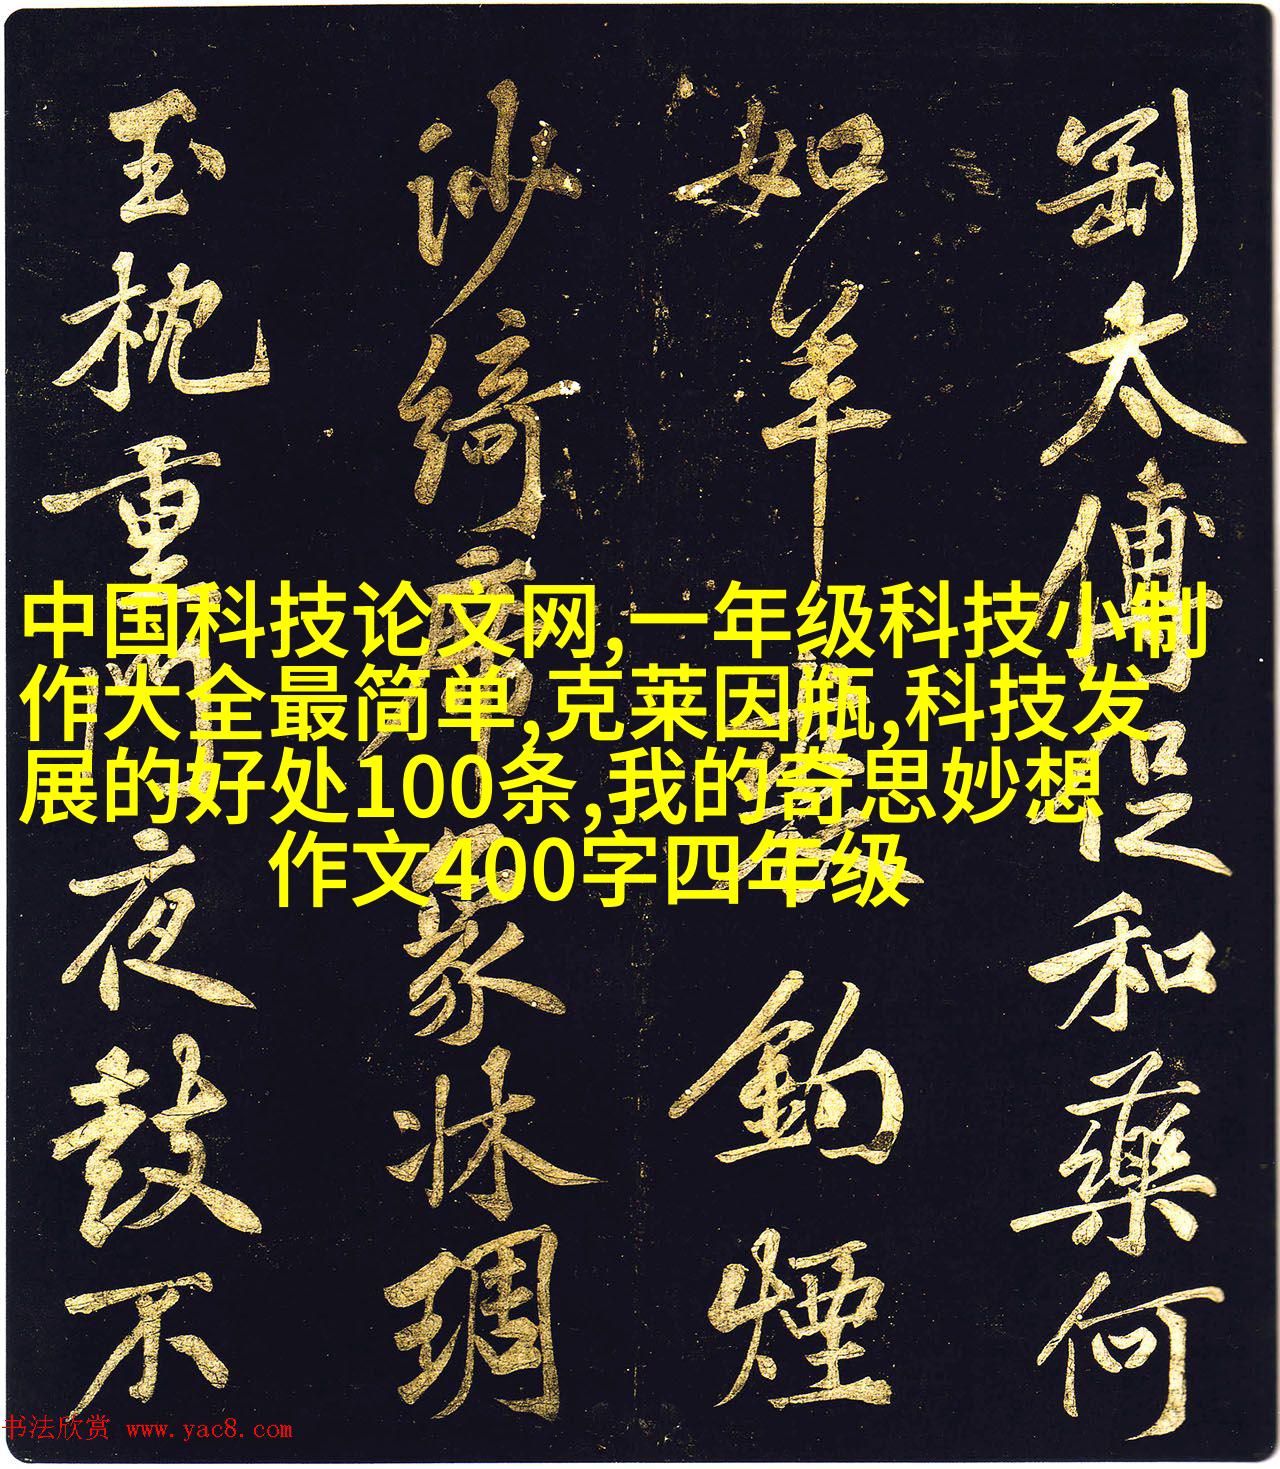 劉太傅促和藥何
如羊鈎煙
沙綺席象牀琱
玉枕重夜鼓不
中国科技论文网,一年级科技小制
作大全最简单,克莱因瓶,科技发
展的好处100条,我的奇思妙想
作文400字四年级
书法欣赏 www.yac8.com